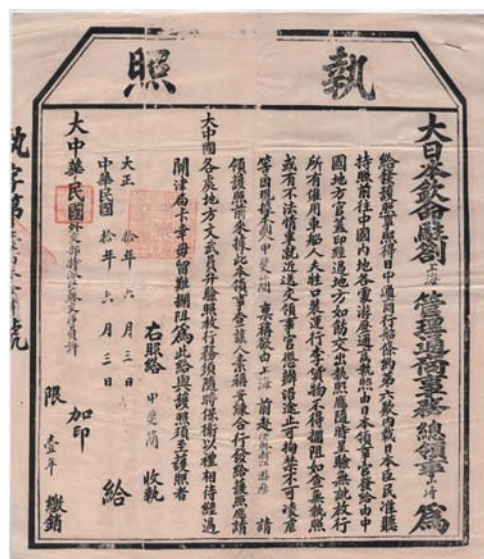 執照
大日本欽命駐劄上海管理通商事務總領事 為
給發護照事照得日中通商行船條約第六款內載日本臣民准聽
持照前往中國內地各處遊歷通商執照由日本領事官發給由中
國地方官蓋印經過地方如飭交出執照應隨時呈驗無訛放行
所有僱用車船人夫牲口裝運行李貨物不得攔阻如查無執照
或有不法情事就近送交領事官懲辦沿途止可拘禁不可凌虐
等因現據 甲斐 稟稱欲由上海 前赴 請
領護照前來據此本領事查該人素稱妥練合行發給護照應請
大中國各處地方文武員弁驗照放行務須隨時保衛以禮相待經過
關津局卡幸毋留難攔阻為此給與護照須至護照者
右照給 甲斐 收執
大正 拾年 六月 三日
中華民國 拾年 六月 三日 給
大中華民國外交部特派江蘇交涉員許 加印
限 壹年 繳銷
執字第 號